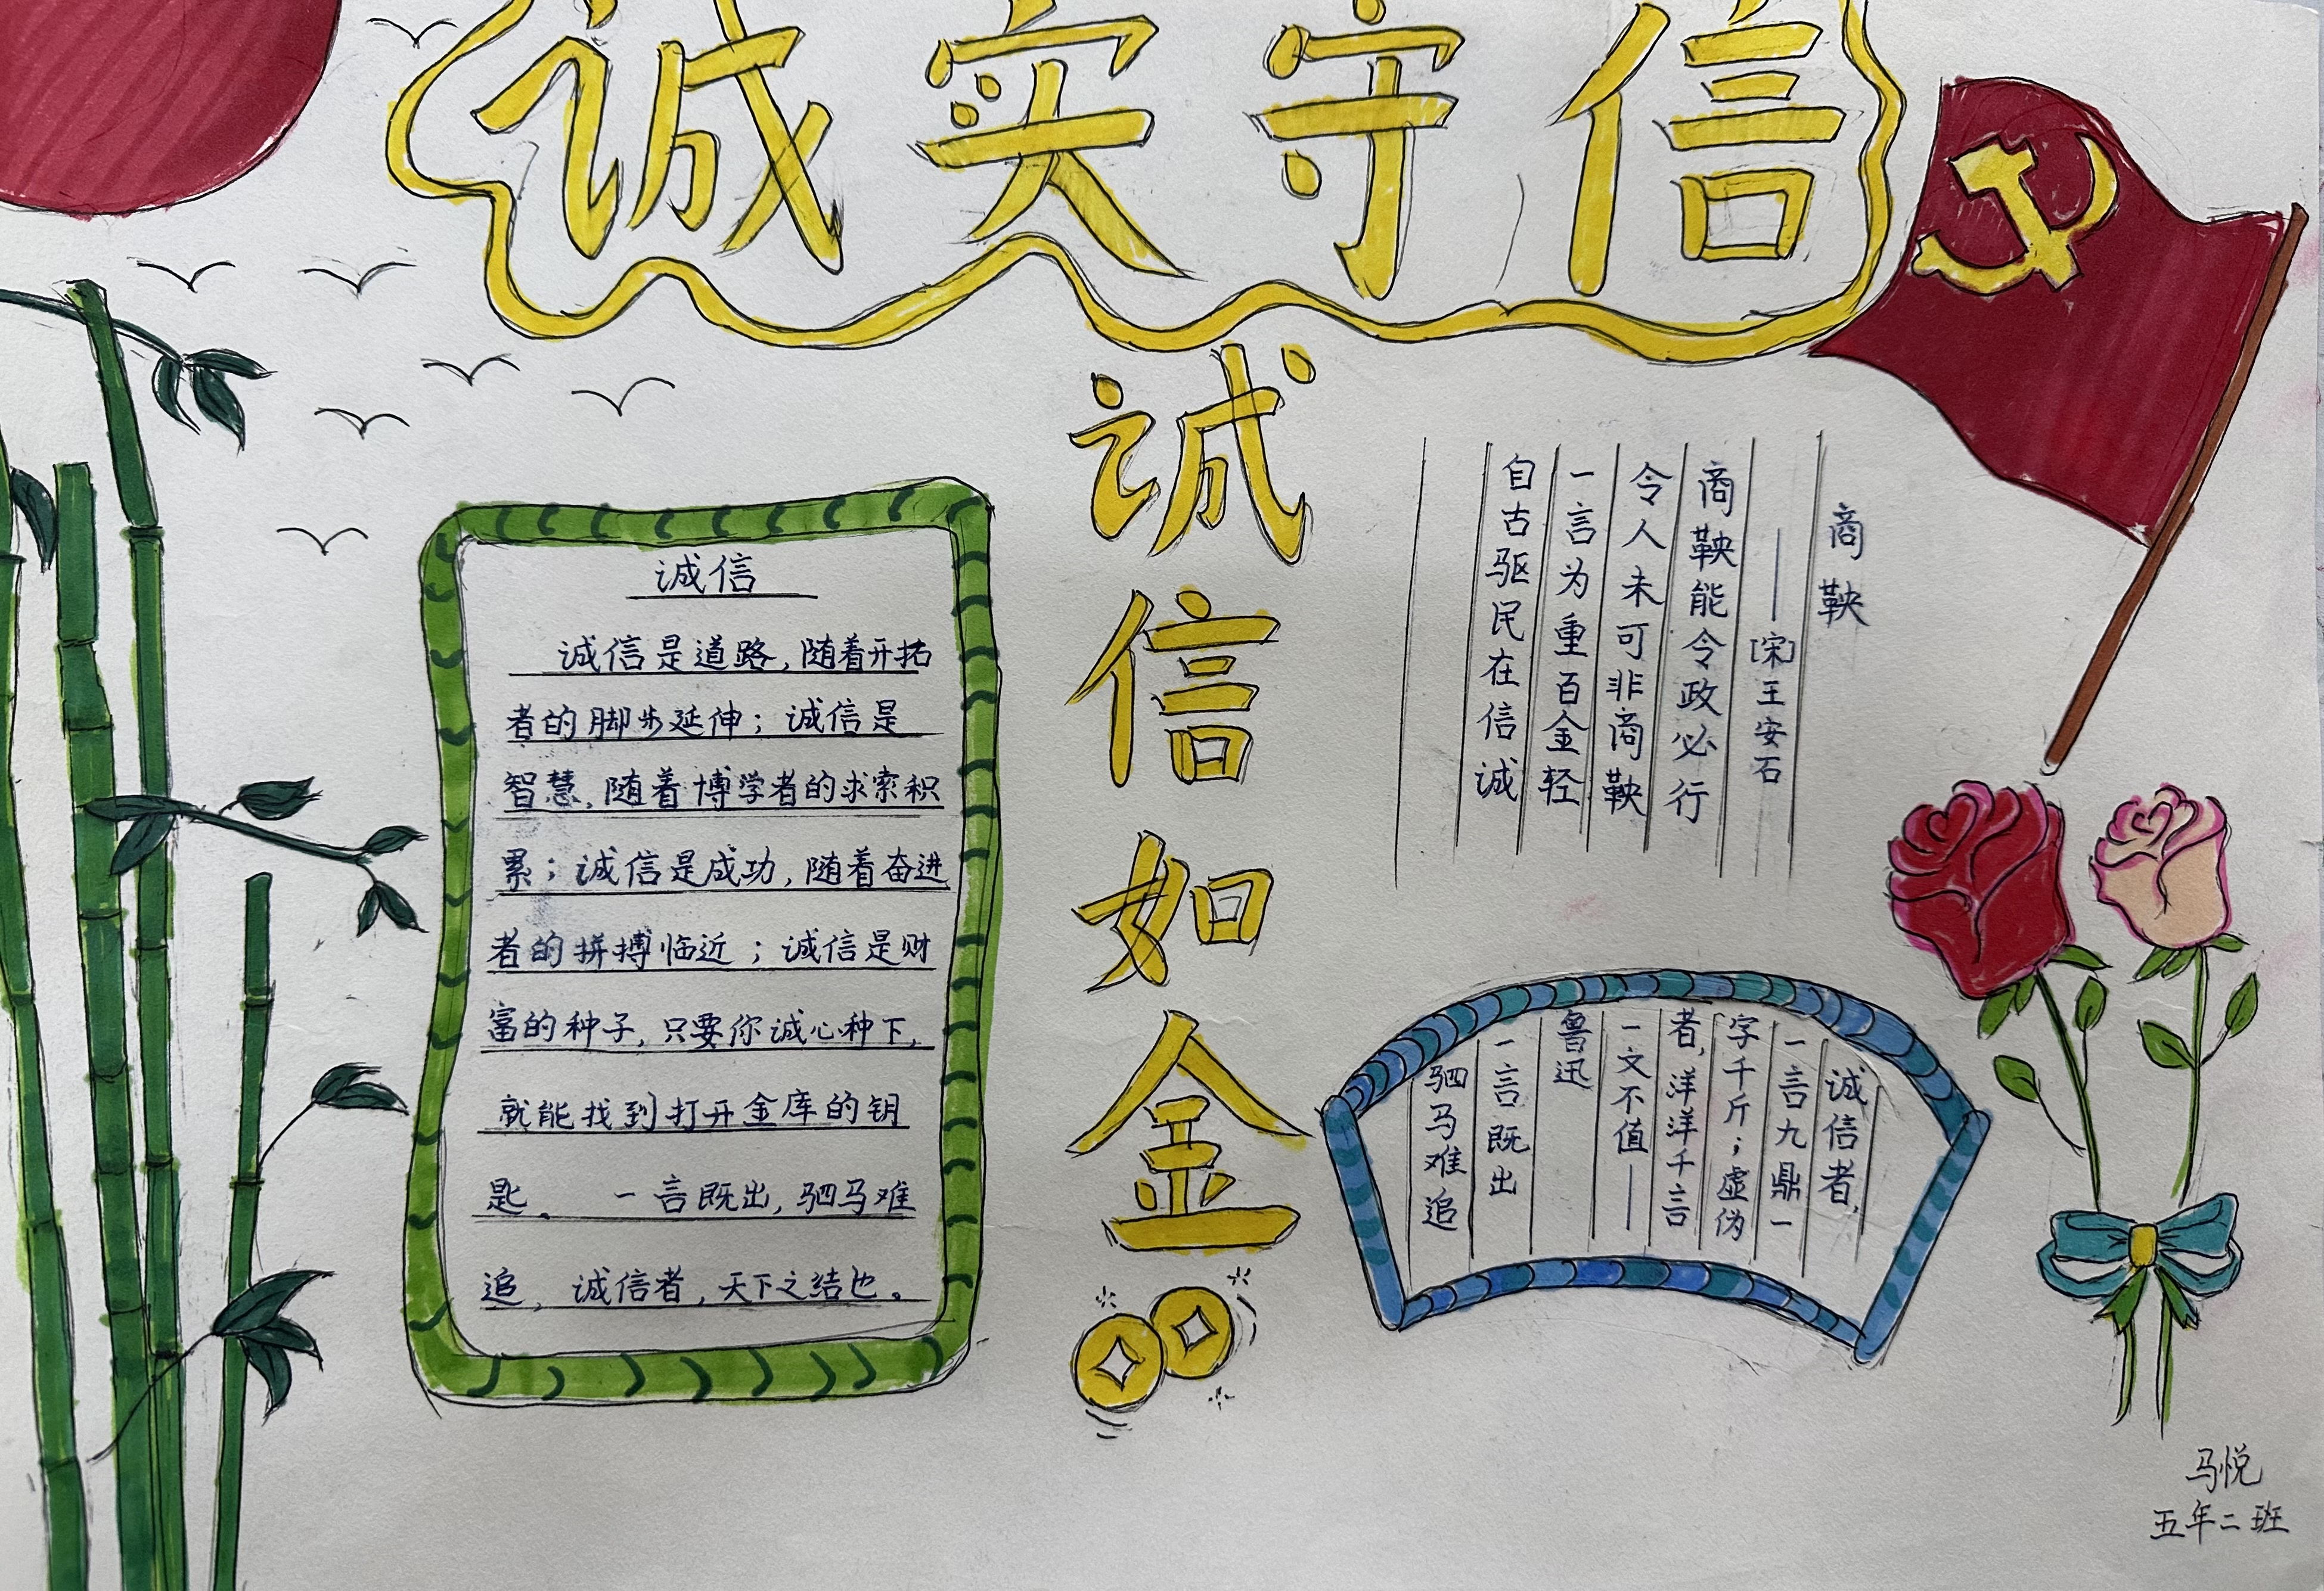 诚实守信
诚信如金
诚信
诚信是道路,随着开拓
者的脚步延伸;诚信是
智慧,随着博学者的求索积
累;诚信是成功,随着奋进
者的拼搏临近;诚信是财
富的种子,只要你诚心种下,
就能找到打开金库的钥
匙。 一言既出,驷马难
追, 诚信者,天下之结也。
商鞅
——[宋]王安石
商鞅能令政必行
令人未可非商鞅
一言为重百金轻
自古驱民在信诚
诚信者,
一言九鼎一
字千斤;虚伪
者,洋洋千言
一文不值——
鲁迅
一言既出
驷马难追
马悦
五年二班